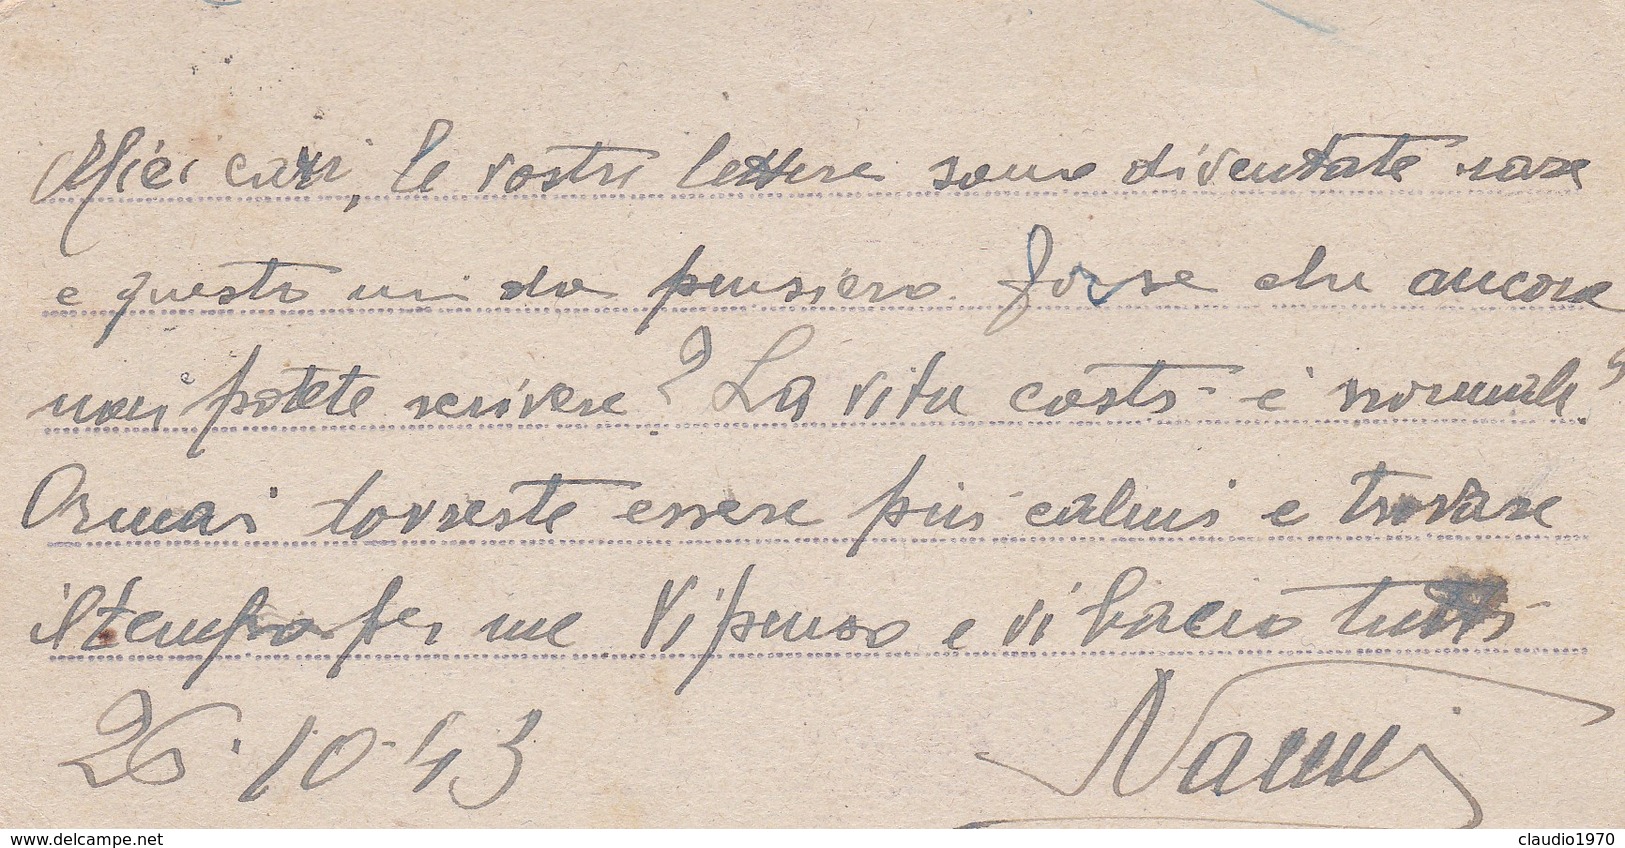 Miei cari, le vostre lettere sono diventate rare
e questo mi da pensiero. Forse che ancora
non potete scrivere? La vita costì è normale.
Ormai dovreste essere più calmi e trovare
il tempo per me. Vi penso e vi bacio tutti
26.10.43 Nanni
www.delcampe.net
claudio1970